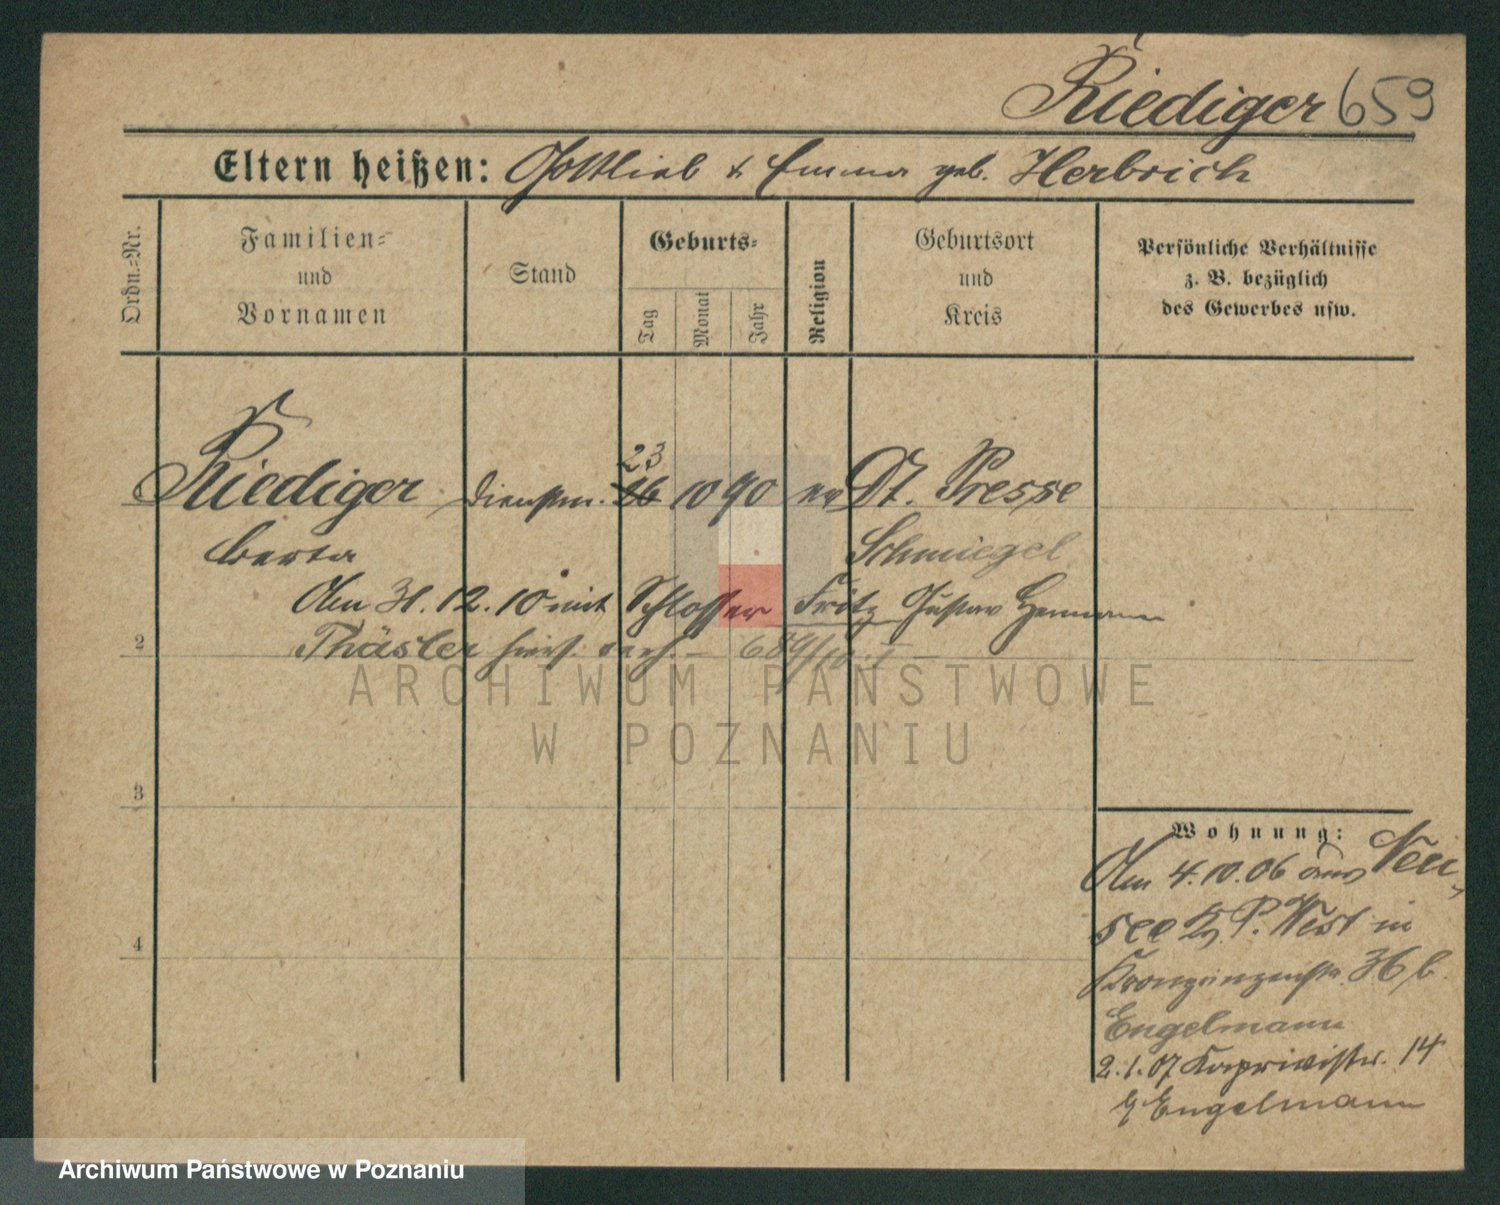 Riediger 659
Eltern heißen: Gottlieb & Emma geb. Herbrich
Ordn.-Nr.
Familien-
und
Vornamen
Stand
Geburts-
Tag
Monat
Jahr
Religion
Geburtsort
und
Kreis
Persönliche Verhältnisse
z. B. bezüglich
des Gewerbes usw.
23
Riediger Dienstm. 26 10 90 ev Dt. Presse
Berta Schmiegel
Am 31. 12. 10 mit Schlosser Fritz Gustav Hermann
2 Thäsler hier verh. – 689/10
ARCHIWUM PAŃSTWOWE
W POZNANIU
3
Wohnung:
Am 4. 10. 06 aus Neu-
see Kr. P. West in
4
Kronprinzenstr. 36 b.
Engelmann
2. 1. 07 Kaprivistr. 14
b/ Engelmann
Archiwum Państwowe w Poznaniu